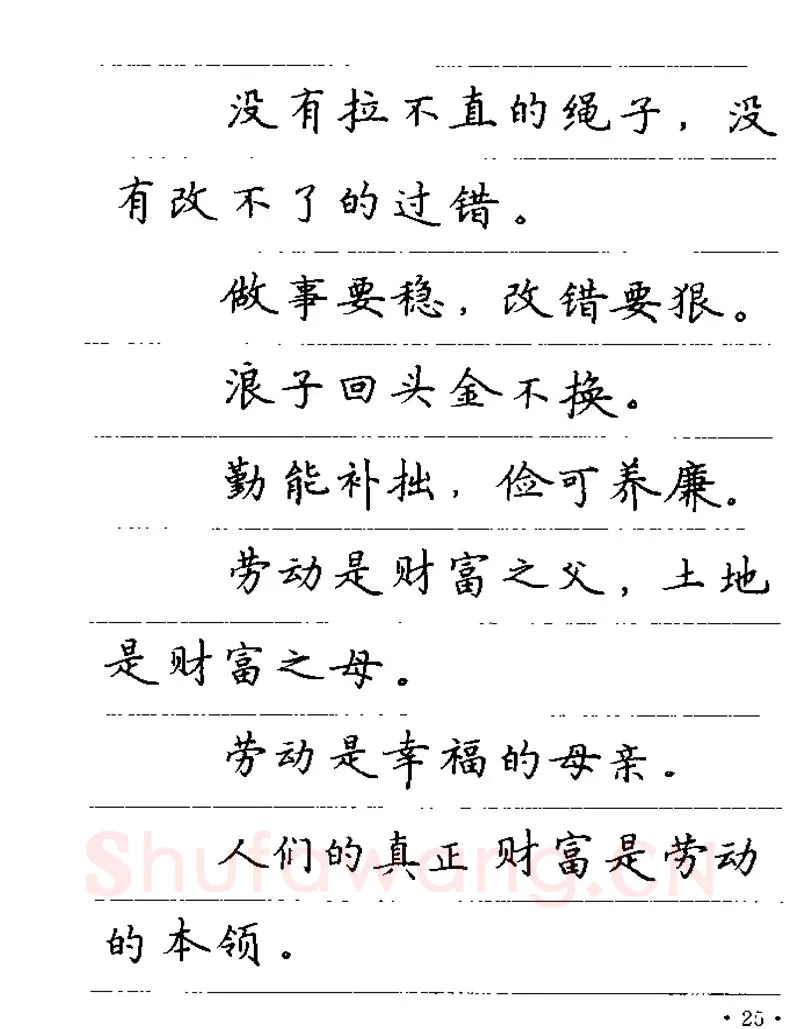 没有拉不直的绳子，没
有改不了的过错。
做事要稳，改错要狠。
浪子回头金不换。
勤能补拙，俭可养廉。
劳动是财富之父，土地
是财富之母。
劳动是幸福的母亲。
人们的真正财富是劳动
Shufawang.CN
的本领。
·25·